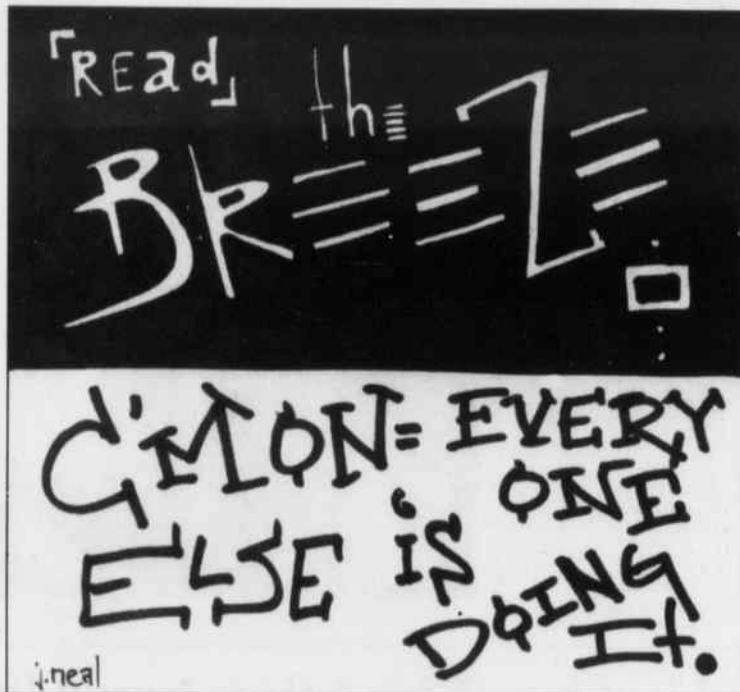 「REad」
the
BREEZE.
C'MON= EVERY
ONE
ELSE iS
DOING
It.
j.neal